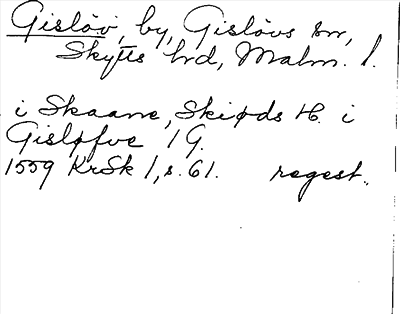 Gislöv, by, Gislövs sn,
Skytts hd, Malm. l.
i Skaane, Skiøds H. i
Gisløfve 1 G.
1559 KrSk 1, s. 61. regest.